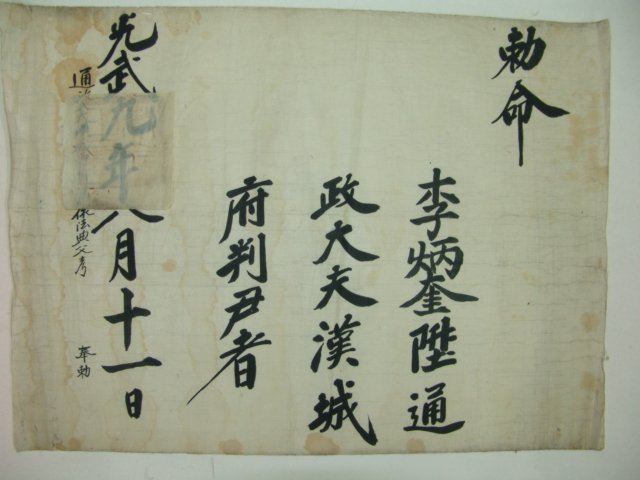 勅命
李炳奎陞通
政大夫漢城
府判尹者
光武九年八月十一日
通 依法典父考
奉勅